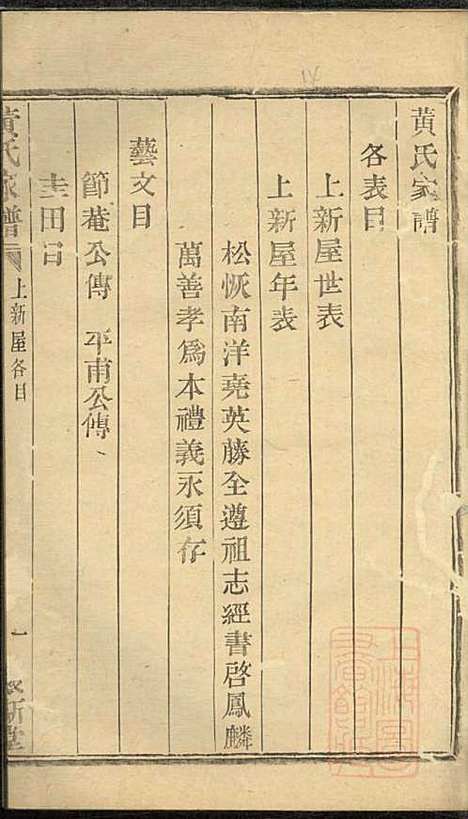 黄氏家譜
各表目
上新屋世表
上新屋年表
松恢南洋堯英藤全遵祖志經書啓鳳麟
萬善孝爲本禮義永須存
藝文目
節菴公傳 平甫公傳
圭田目
黄氏家譜
上新屋各目
一
敘新堂